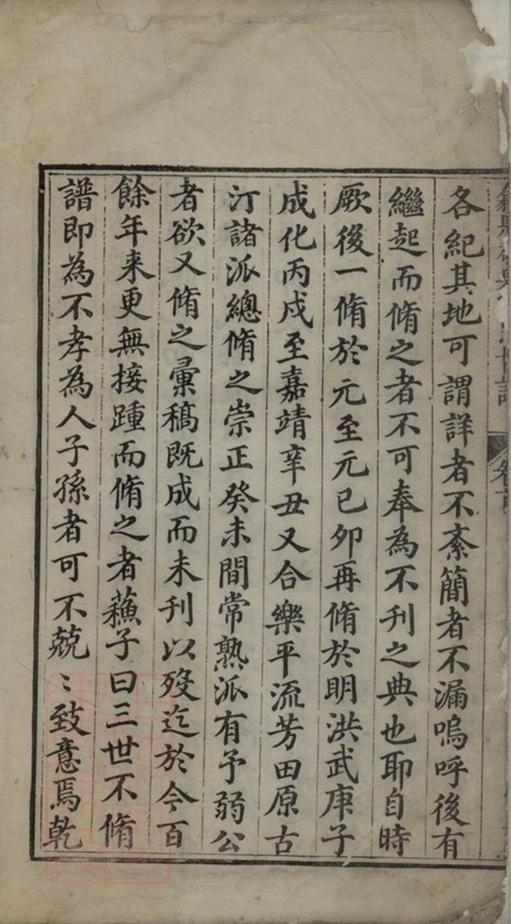 各紀其地可謂詳者不紊簡者不漏嗚呼後有
繼起而脩之者不可奉為不刊之典也耶自時
厥後一脩於元至元己卯再脩於明洪武庚子
成化丙戍至嘉靖辛丑又合樂平流芳田原古
汀諸派總脩之崇正癸未間常熟派有予弱公
者欲又脩之彙稿既成而未刊以歿迄於今百
餘年来更無接踵而脩之者蘓子曰三世不脩
譜即為不孝為人子孫者可不兢〻致意焉乾